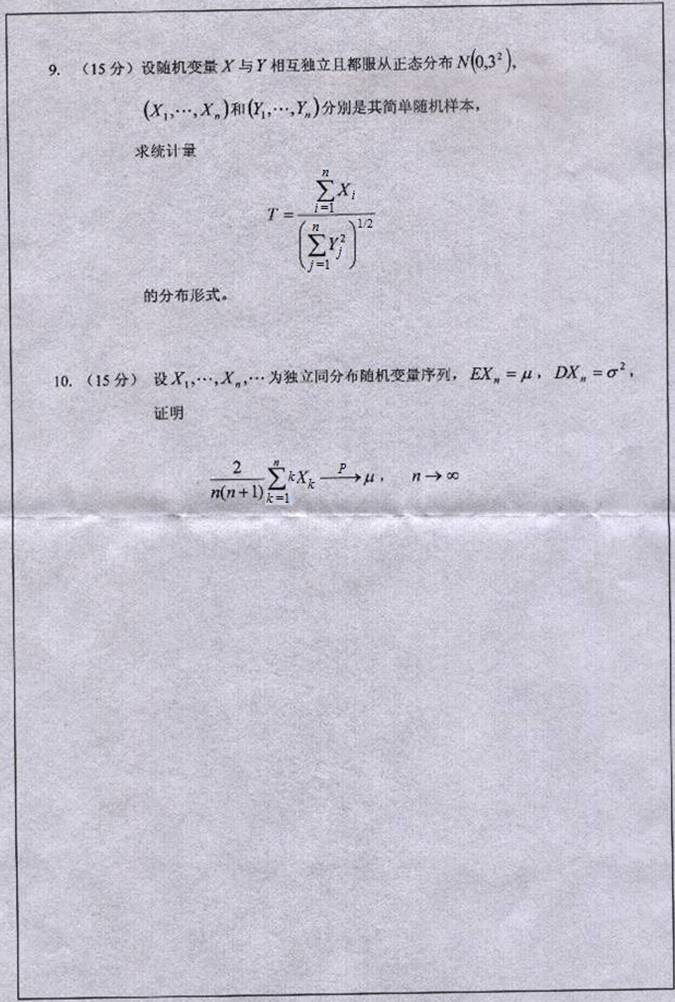 9. （15 分）设随机变量 X 与 Y 相互独立且都服从正态分布 N(0,3²),
(X₁,⋯,Xₙ)和(Y₁,⋯,Yₙ)分别是其简单随机样本，
求统计量
T = \frac{\sum_{i=1}^{n} X_i}{\left(\sum_{j=1}^{n} Y_j^2\right)^{1/2}}
的分布形式。
10. （15 分） 设 X₁,⋯,Xₙ,⋯ 为独立同分布随机变量序列，EXₙ = μ，DXₙ = σ²，
证明
\frac{2}{n(n+1)} \sum_{k=1}^{n} kX_k \xrightarrow{P} μ， n → ∞